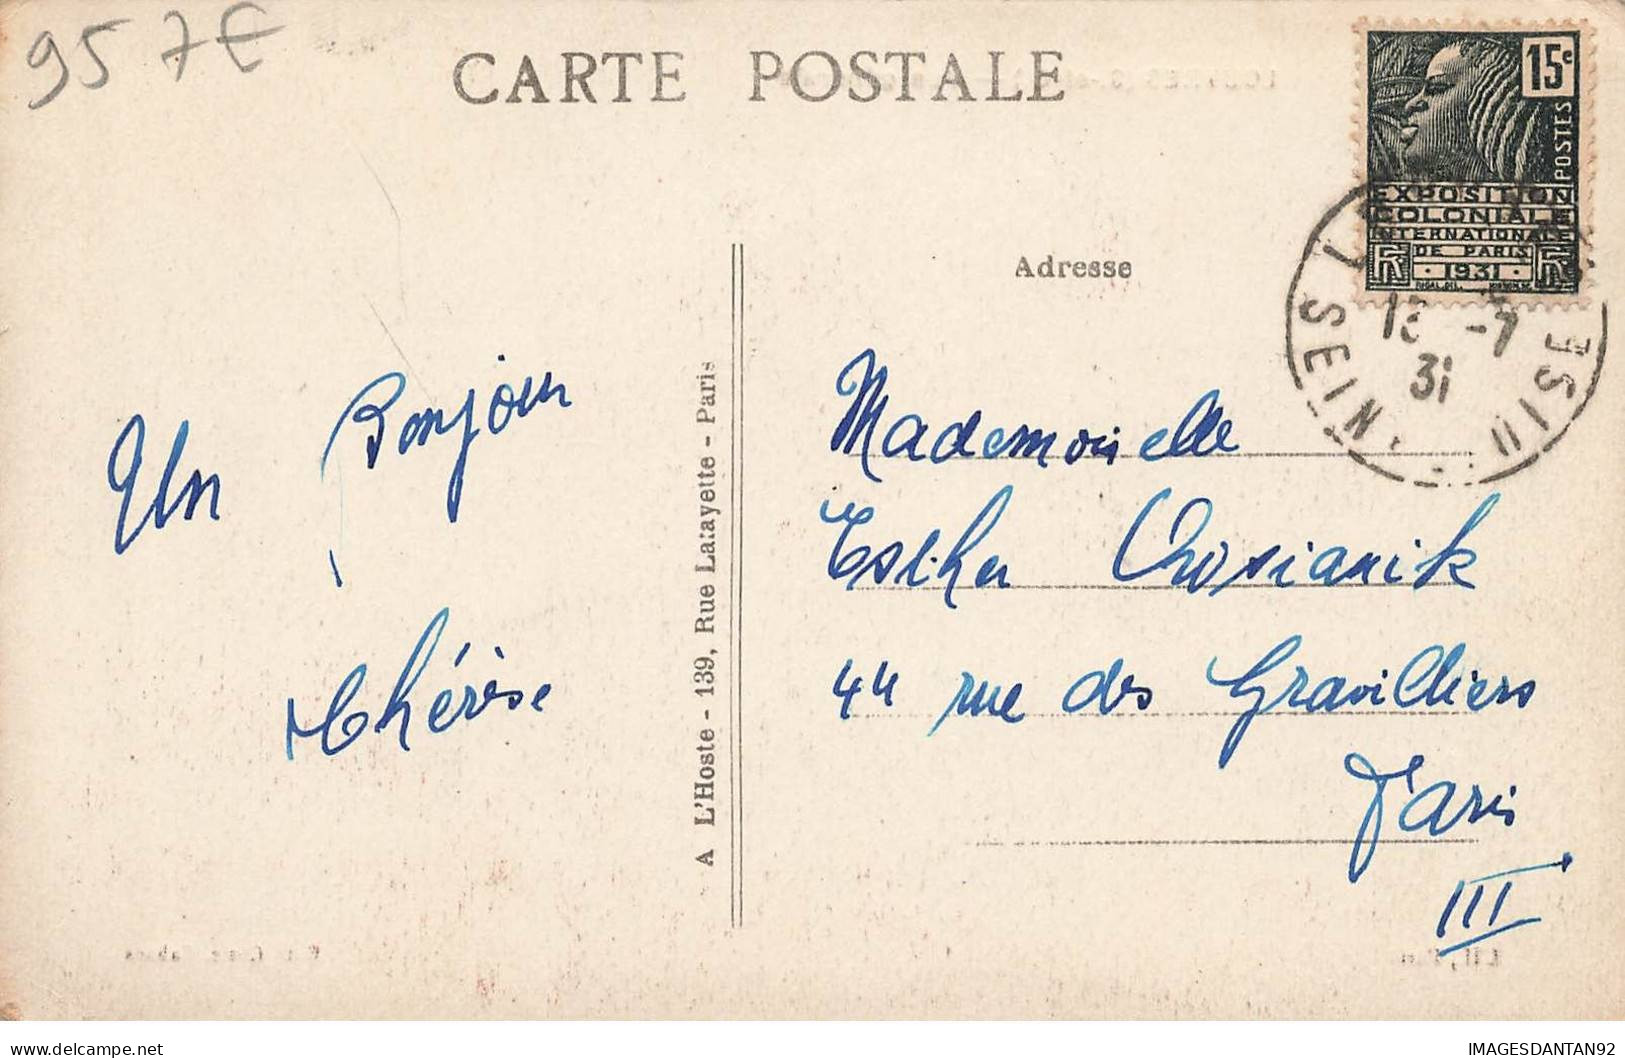 95 7€
CARTE POSTALE
15c
POSTES
EXPOSITION
COLONIALE
INTERNATIONALE
DE PARIS
RF 1931 RF
13 -7
31
SEINE
Adresse
Un Bonjour
Thérèse
A L'Hoste - 139, Rue Lafayette - Paris
Mademoiselle
Esther
44 rue des Gravilliers
Paris
III
IMAGESDANTAN92
delcampe.net